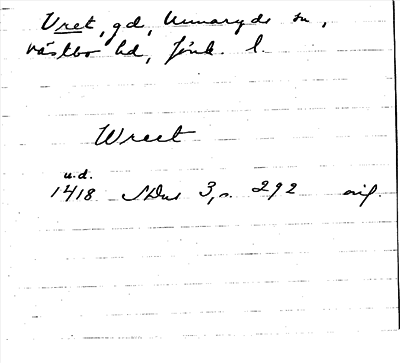 Vret, gd, Unnaryds sn,
västbo hd, Jönk. l.
Wreet
u.d.
1418 SDns 3, s. 292 orig.